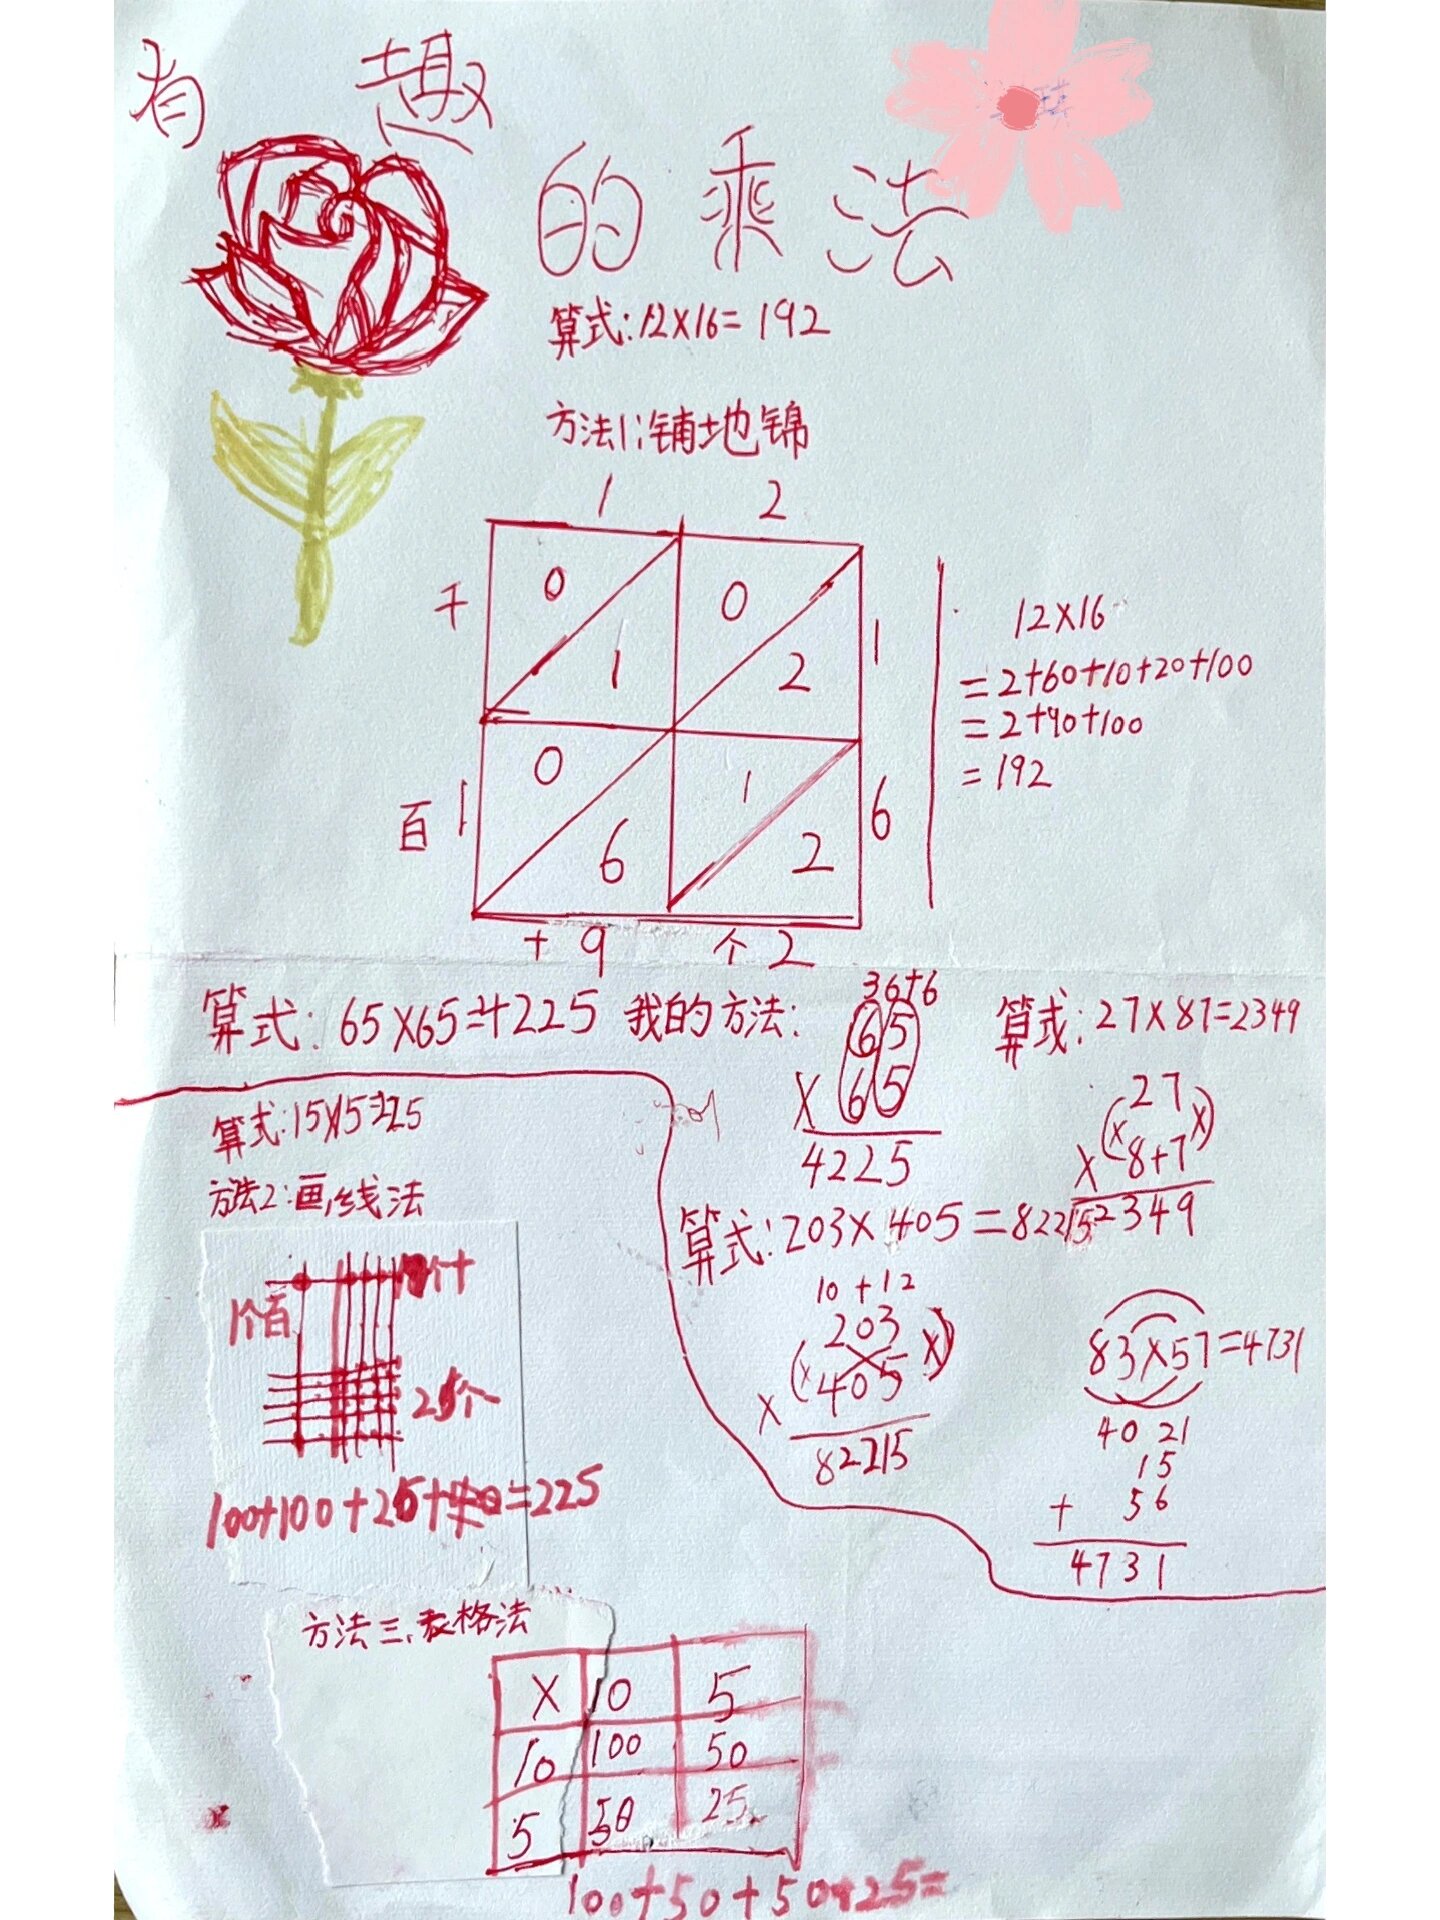 有趣
的乘法
算式:12×16=192
方法1:铺地锦
1 2
千 0 0 1
1 2
百 1 0 1 6
6 2
十 9 个 2
12×16
=2+60+10+20+100
=2+90+100
=192
算式:65×65=4225 我的方法:
36+6
65
×65
4225
算式:27×87=2349
27
(× ×)
× 8+7
2349
算式:15×15=225
方法2:画线法
1个百
个十
25个
100+100+25=225
算式:203×405=82215
10+12
203
(× ×)
× 405
82215
83×57=4731
40 21
15
+ 56
4731
方法三、表格法
× 10 5
10 100 50
5 50 25
100+50+50+25=